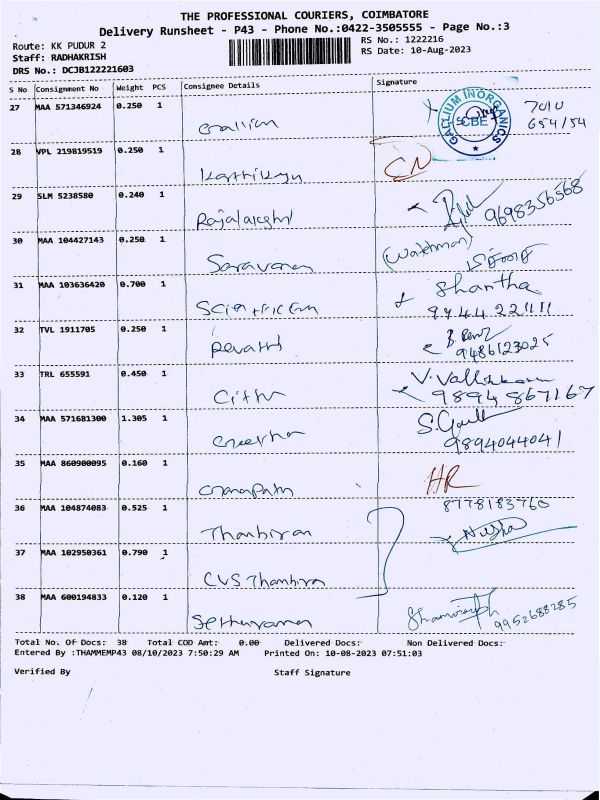 THE PROFESSIONAL COURIERS, COIMBATORE
Delivery Runsheet - P43 - Phone No.:0422-3505555 - Page No.:3
Route: KK PUDUR 2 RS No.: 1222216
Staff: RADHAKRISH RS Date: 10-Aug-2023
DRS No.: DCJB122221603
S No Consignment No Weight PCS Consignee Details Signature
27 MAA 571346924 0.250 1 Gallium GALLIUM INORGANICS CBE 7010
654154
28 VPL 219819519 0.250 1 Karthikeyn
29 SLM 5238580 0.240 1 Rajalakshmi 9698356568
30 MAA 104427143 0.250 1 Saravanan (Watchman)
31 MAA 103636420 0.700 1 Scientific Shantha
9744 221111
32 TVL 1911705 0.250 1 Revathi
9486123025
33 TRL 655591 0.450 1 Cithu
9894 867167
34 MAA 571681300 1.305 1
9894044041
35 MAA 860900095 0.160 1 Ganapathy HR
8778183760
36 MAA 104874083 0.525 1 Thambiran Nisha
37 MAA 102950361 0.790 1 CVS Thambiran
38 MAA 600194833 0.120 1 9952688285
Total No. Of Docs: 38 Total COD Amt: 0.00 Delivered Docs: Non Delivered Docs:
Entered By :THAMMEMP43 08/10/2023 7:50:29 AM Printed On: 10-08-2023 07:51:03
Verified By Staff Signature